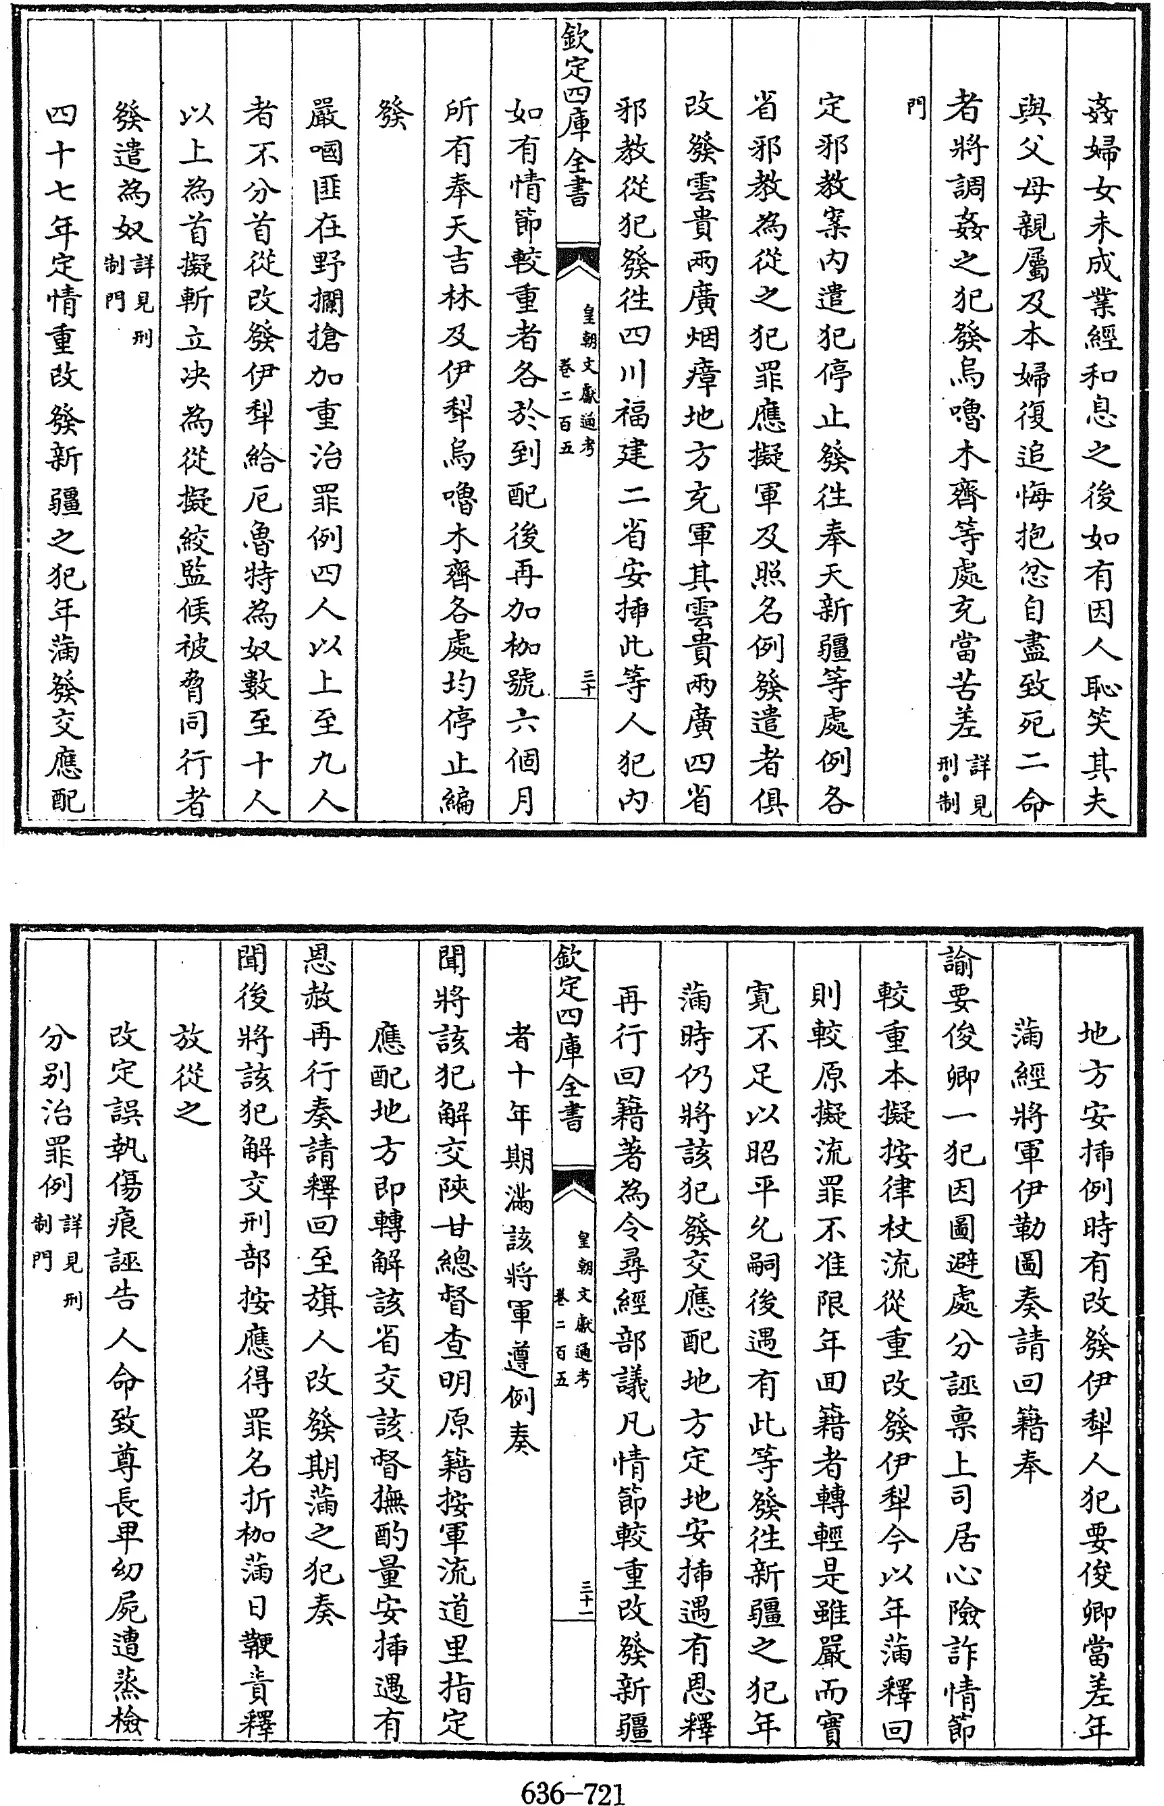 姦婦女未成業經和息之後如有因人恥笑其夫
與父母親屬及本婦復追悔抱忿自盡致死二命
者將調姦之犯發烏嚕木齊等處充當苦差詳見刑制
門
定邪教案內遣犯停止發往奉天新疆等處例各
省邪教為從之犯罪應擬軍及照名例發遣者俱
改發雲貴兩廣烟瘴地方充軍其雲貴兩廣四省
邪教從犯發往四川福建二省安揷此等人犯內
欽定四庫全書
皇朝文獻通考
卷二百五
三十
如有情節較重者各於到配後再加枷號六個月
所有奉天吉林及伊犁烏嚕木齊各處均停止編
發
嚴嘓匪在野攔搶加重治罪例四人以上至九人
者不分首從改發伊犁給厄魯特為奴數至十人
以上為首擬斬立决為從擬絞監候被脅同行者
發遣為奴詳見刑制門
四十七年定情重改發新疆之犯年滿發交應配
地方安揷例時有改發伊犁人犯要俊卿當差年
滿經將軍伊勒圖奏請回籍奉
諭要俊卿一犯因圖避處分誣禀上司居心險詐情節
較重本擬按律杖流從重改發伊犁今以年滿釋回
則較原擬流罪不准限年回籍者轉輕是雖嚴而實
寛不足以昭平允嗣後遇有此等發往新疆之犯年
滿時仍將該犯發交應配地方定地安揷遇有恩釋
再行回籍著為令尋經部議凡情節較重改發新疆
欽定四庫全書
皇朝文獻通考
卷二百五
三十一
者十年期滿該將軍遵例奏
聞將該犯解交陜甘總督查明原籍按軍流道里指定
應配地方即轉解該省交該督撫酌量安揷遇有
恩赦再行奏請釋回至旗人改發期滿之犯奏
聞後將該犯解交刑部按應得罪名折枷滿日鞭責釋
放從之
改定誤執傷痕誣告人命致尊長卑幼屍遭蒸檢
分別治罪例詳見刑制門
636-721